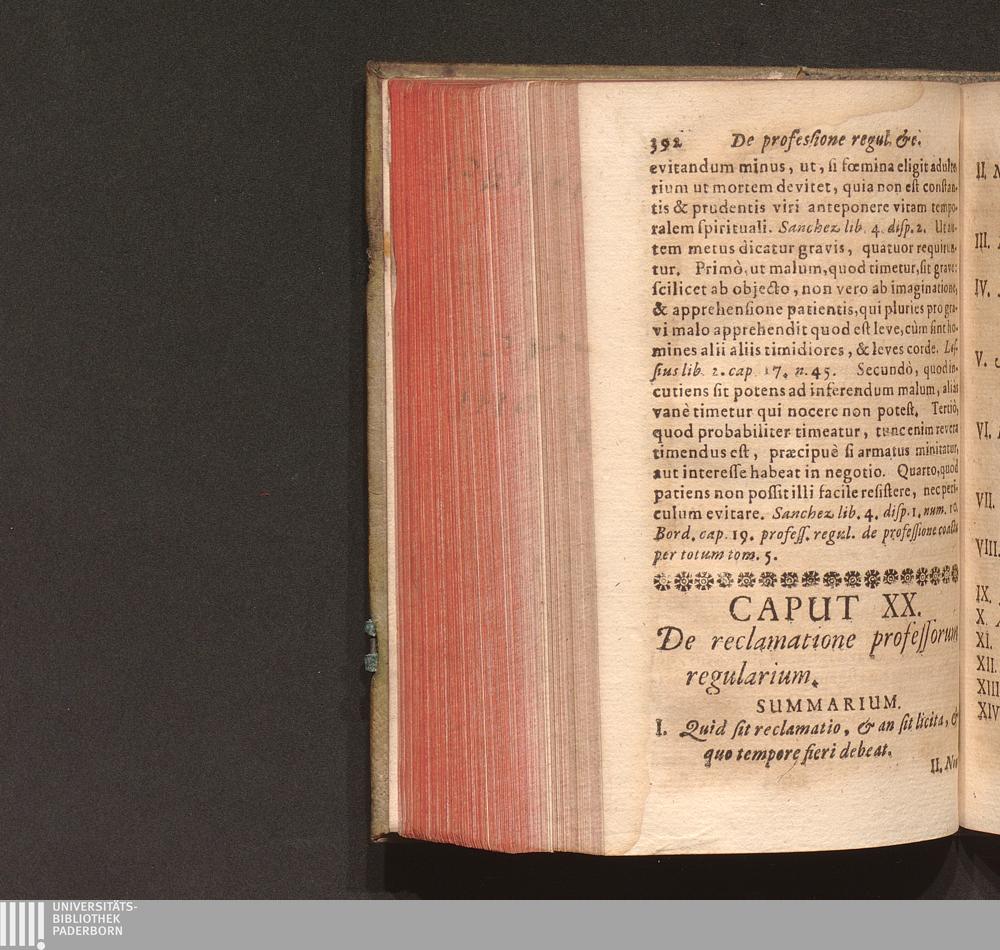 392 De professione regul. &c.
evitandum minus, ut, si fœmina eligit adulte-
rium ut mortem devitet, quia non est constan-
tis & prudentis viri anteponere vitam tempo-
ralem spirituali. Sanchez lib. 4. disp. 2. Ut au-
tem metus dicatur gravis, quatuor requirun-
tur. Primò, ut malum, quod timetur, sit grave:
scilicet ab objecto, non vero ab imaginatione,
& apprehensione patientis, qui pluries pro gra-
vi malo apprehendit quod est leve, cùm sint ho-
mines alii aliis timidiores, & leves corde. Les-
sius lib. 2. cap. 17. n. 45. Secundò, quod in-
cutiens sit potens ad inferendum malum, alias
vanè timetur qui nocere non potest. Tertiò,
quod probabiliter timeatur, tunc enim revera
timendus est, præcipuè si armatus minitatur,
aut interesse habeat in negotio. Quarto, quod
patiens non possit illi facile resistere, nec peri-
culum evitare. Sanchez lib. 4. disp. 1. num. 10.
Bord. cap. 19. profess. regul. de professione coacta
per totum tom. 5.
CAPUT XX.
De reclamatione professorum
regularium.
SUMMARIUM.
I. Quid sit reclamatio, & an sit licita, &
quo tempore fieri debeat.
II.
II.
III.
IV.
V.
VI.
VII.
VIII.
IX.
X.
XI.
XII.
XIII
XIV
UNIVERSITÄTS-
BIBLIOTHEK
PADERBORN